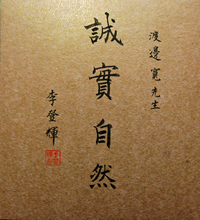 渡邊寬先生
誠實自然
李登輝